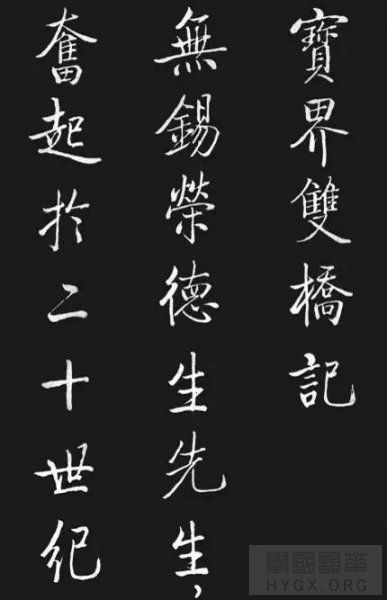 寶界雙橋記
無錫榮德生先生，
奮起於二十世紀
華韻國學
HYGX.ORG